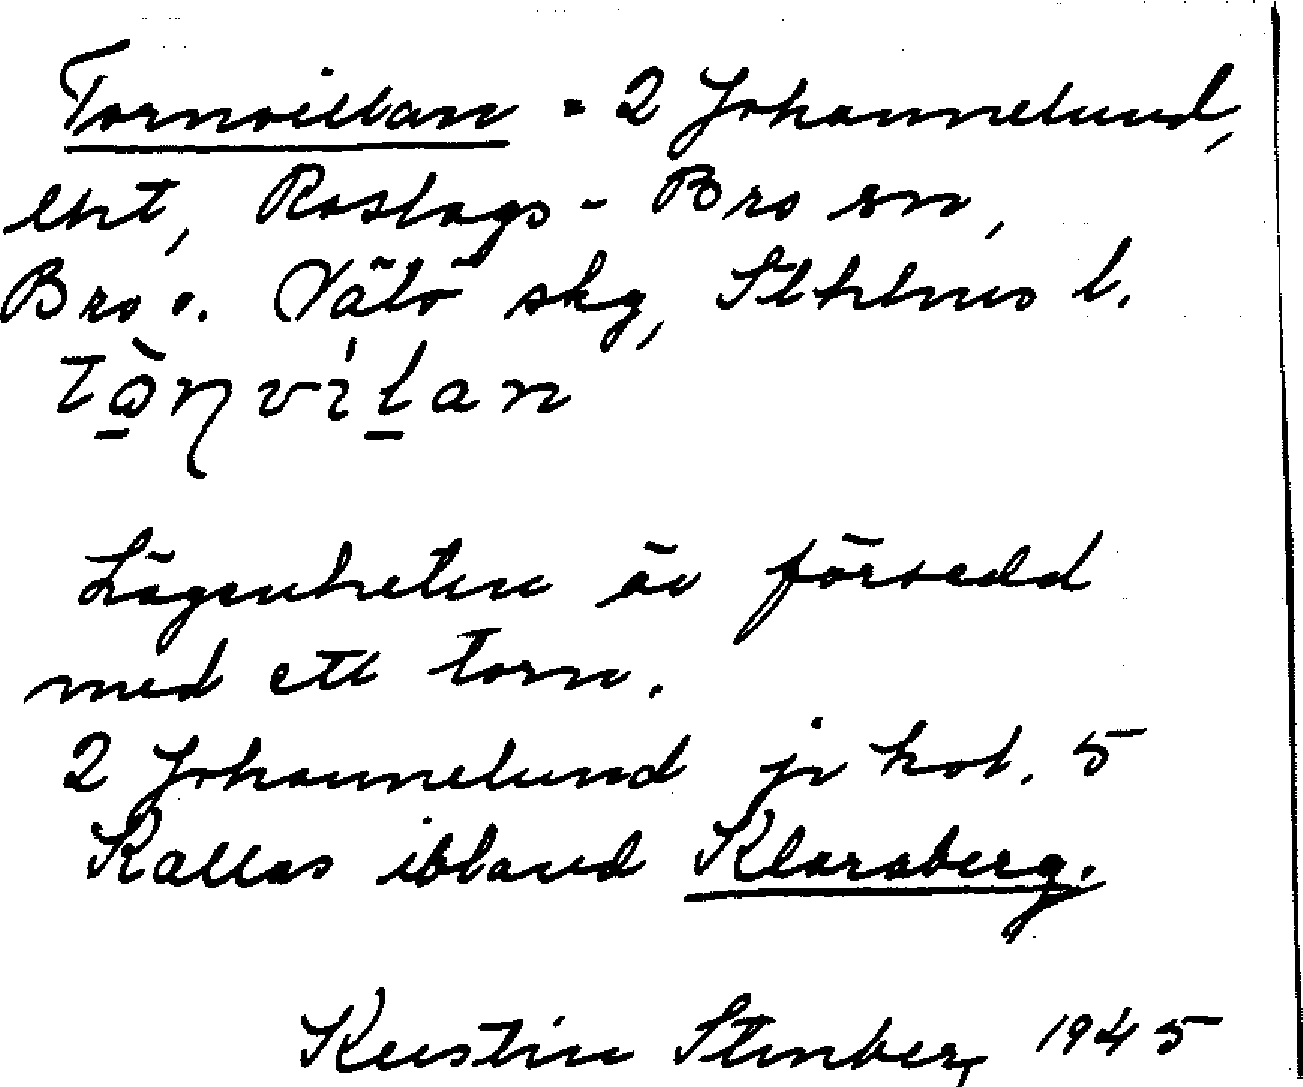 Tornvillan = 2 Johannelund,
lht, Roslags-Bro sn,
Bro o. Vätö skg, Sthlms l.
Lägenheten är försedd
med ett torn.
2 Johannelund jr kot. 5
Kallas ibland Klaraberg.
Kerstin Stenberg 1945